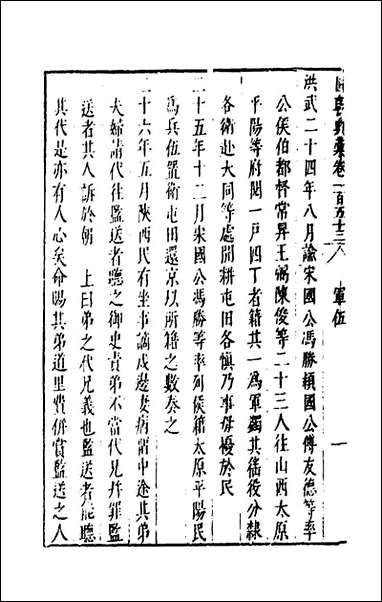 國朝典彙卷一百五十三 軍伍 一
洪武二十四年八月諭宋國公馮勝穎國公傅友德等率
公侯伯都督常昇王弼陳俊等二十三人往山西太原
平陽等府閱一戶四丁者籍其一為軍蠲其徭役分隸
各衛赴大同等處開耕屯田各慎乃事毋擾於民
二十五年十二月宋國公馮勝等率列侯籍太原平陽民
為兵伍置衛屯田還京以所籍之數奏之
二十六年五月陝西民有坐事謫戍邊妻病留中途其弟
夫婦請代往監送者聽之御史責弟不當代兄幷罪監
送者其人訴於朝 上曰弟之代兄義也監送者能聽
其代是亦有人心矣命賜其弟道里費併賞監送之人